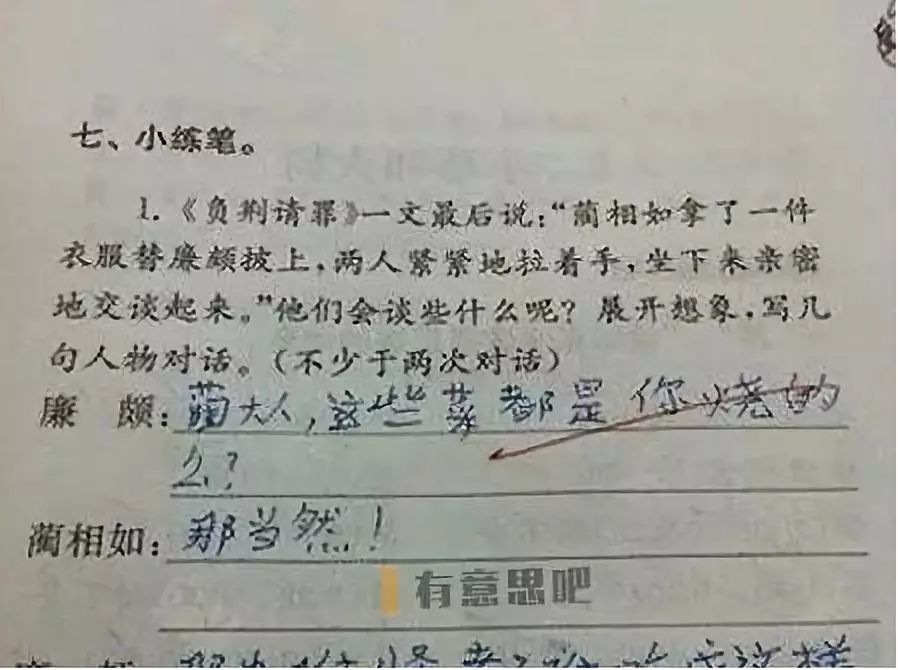 七、小练笔。
1.《负荆请罪》一文最后说:“蔺相如拿了一件
衣服替廉颇披上,两人紧紧地拉着手,坐下来亲密
地交谈起来。”他们会谈些什么呢?展开想象,写几
句人物对话。(不少于两次对话)
廉 颇:蔺大人,这些菜都是你烧的
么?
蔺相如:那当然!
有意思吧